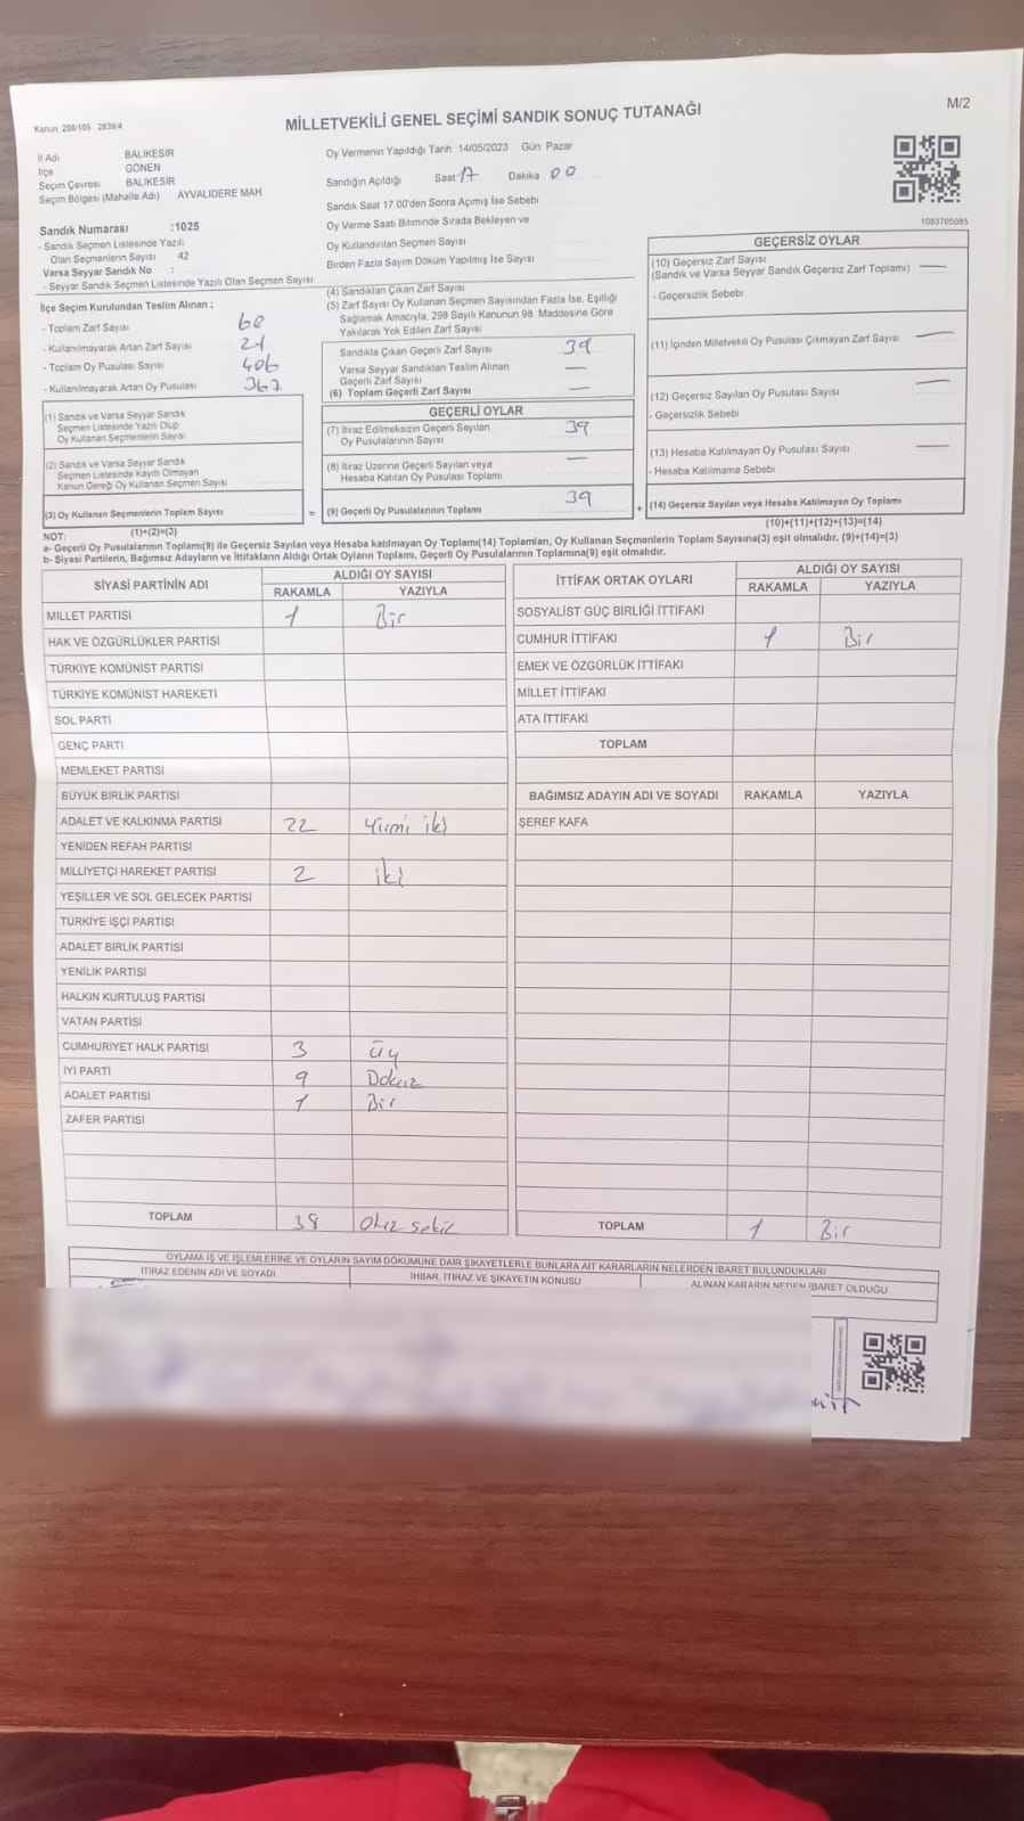 M/2
Kanun: 298/105 2839/4
MİLLETVEKİLİ GENEL SEÇİMİ SANDIK SONUÇ TUTANAĞI
İl Adı BALIKESİR
İlçe GÖNEN
Seçim Çevresi BALIKESİR
Seçim Bölgesi (Mahalle Adı) AYVALIDERE MAH
Sandık Numarası :1025
- Sandık Seçmen Listesinde Yazılı
Olan Seçmenlerin Sayısı 42
Varsa Seyyar Sandık No :
- Seyyar Sandık Seçmen Listesinde Yazılı Olan Seçmen Sayısı
Oy Vermenin Yapıldığı Tarih: 14/05/2023 Gün: Pazar
Sandığın Açıldığı Saat 17 Dakika 00
Sandık Saat 17.00'den Sonra Açımış İse Sebebi
Oy Verme Saati Bitiminde Sırada Bekleyen ve
Oy Kullandırılan Seçmen Sayısı
Birden Fazla Sayım Döküm Yapılmış İse Sayısı
1083705085
İlçe Seçim Kurulundan Teslim Alınan ;
- Toplam Zarf Sayısı 60
- Kullanılmayarak Artan Zarf Sayısı 21
- Toplam Oy Pusulası Sayısı 406
- Kullanılmayarak Artan Oy Pusulası 367
(1) Sandık ve Varsa Seyyar Sandık
Seçmen Listesinde Yazılı Olup
Oy Kullanan Seçmenlerin Sayısı
(2) Sandık ve Varsa Seyyar Sandık
Seçmen Listesinde Kayıtlı Olmayan
Kanun Gereği Oy Kullanan Seçmen Sayısı
(3) Oy Kullanan Seçmenlerin Toplam Sayısı =
(1)+(2)=(3)
(4) Sandıktan Çıkan Zarf Sayısı
(5) Zarf Sayısı Oy Kullanan Seçmen Sayısından Fazla İse, Eşitliği
Sağlamak Amacıyla, 298 Sayılı Kanunun 98. Maddesine Göre
Yakılarak Yok Edilen Zarf Sayısı
Sandıkta Çıkan Geçerli Zarf Sayısı 39
Varsa Seyyar Sandıktan Teslim Alınan
Geçerli Zarf Sayısı —
(6) Toplam Geçerli Zarf Sayısı —
GEÇERLİ OYLAR
(7) İtiraz Edilmeksizin Geçerli Sayılan
Oy Pusulalarının Sayısı 39
(8) İtiraz Üzerine Geçerli Sayılan veya
Hesaba Katılan Oy Pusulası Toplamı —
(9) Geçerli Oy Pusulalarının Toplamı 39 +
GEÇERSİZ OYLAR
(10) Geçersiz Zarf Sayısı
(Sandık ve Varsa Seyyar Sandık Geçersiz Zarf Toplamı) —
- Geçersizlik Sebebi
(11) İçinden Milletvekili Oy Pusulası Çıkmayan Zarf Sayısı —
(12) Geçersiz Sayılan Oy Pusulası Sayısı —
- Geçersizlik Sebebi
(13) Hesaba Katılmayan Oy Pusulası Sayısı —
- Hesaba Katılmama Sebebi
(14) Geçersiz Sayılan veya Hesaba Katılmayan Oy Toplamı
(10)+(11)+(12)+(13)=(14)
NOT:
a- Geçerli Oy Pusulalarının Toplamı(9) ile Geçersiz Sayılan veya Hesaba katılmayan Oy Toplamı(14) Toplamları, Oy Kullanan Seçmenlerin Toplam Sayısına(3) eşit olmalıdır. (9)+(14)=(3)
b- Siyasi Partilerin, Bağımsız Adayların ve İttifakların Aldığı Ortak Oyların Toplamı, Geçerli Oy Pusulalarının Toplamına(9) eşit olmalıdır.
SİYASİ PARTİNİN ADI ALDIĞI OY SAYISI
RAKAMLA YAZIYLA
MİLLET PARTİSİ 1 Bir
HAK VE ÖZGÜRLÜKLER PARTİSİ
TÜRKİYE KOMÜNİST PARTİSİ
TÜRKİYE KOMÜNİST HAREKETİ
SOL PARTİ
GENÇ PARTİ
MEMLEKET PARTİSİ
BÜYÜK BİRLİK PARTİSİ
ADALET VE KALKINMA PARTİSİ 22 Yirmi iki
YENİDEN REFAH PARTİSİ
MİLLİYETÇİ HAREKET PARTİSİ 2 iki
YEŞİLLER VE SOL GELECEK PARTİSİ
TÜRKİYE İŞÇİ PARTİSİ
ADALET BİRLİK PARTİSİ
YENİLİK PARTİSİ
HALKIN KURTULUŞ PARTİSİ
VATAN PARTİSİ
CUMHURİYET HALK PARTİSİ 3 Üç
İYİ PARTİ 9 Dokuz
ADALET PARTİSİ 1 Bir
ZAFER PARTİSİ
TOPLAM 38 Otuz sekiz
İTTİFAK ORTAK OYLARI ALDIĞI OY SAYISI
RAKAMLA YAZIYLA
SOSYALİST GÜÇ BİRLİĞİ İTTİFAKI
CUMHUR İTTİFAKI 1 Bir
EMEK VE ÖZGÜRLÜK İTTİFAKI
MİLLET İTTİFAKI
ATA İTTİFAKI
TOPLAM
BAĞIMSIZ ADAYIN ADI VE SOYADI RAKAMLA YAZIYLA
ŞEREF KAFA
TOPLAM 1 Bir
OYLAMA İŞ VE İŞLEMLERİNE VE OYLARIN SAYIM DÖKÜMÜNE DAİR ŞİKAYETLERLE BUNLARA AİT KARARLARIN NELERDEN İBARET BULUNDUKLARI
İTİRAZ EDENİN ADI VE SOYADI İHBAR, İTİRAZ VE ŞİKAYETİN KONUSU ALINAN KARARIN NEDEN İBARET OLDUĞU